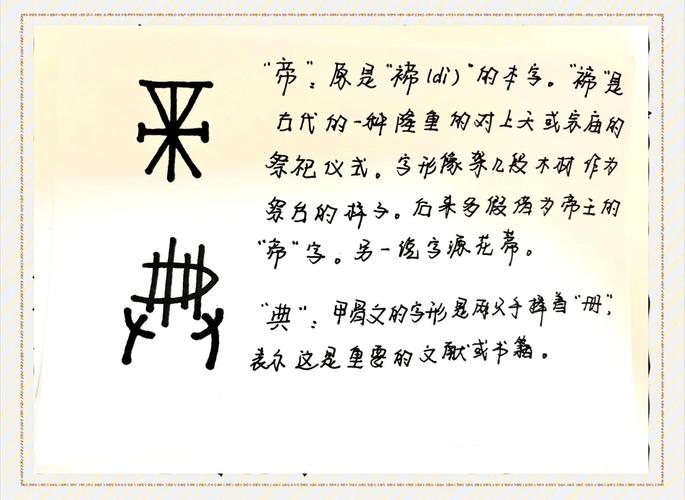 "帝"：原是"禘(dì)"的本字。"禘"是
古代的一种隆重的对上天或宗庙的
祭祀仪式。字形像架几段木材作为
祭台的样子。后来多假借为帝王的
"帝"字。另一说字源花蒂。
"典"：甲骨文的字形是两只手捧着"册"，
表示这是重要的文献或书籍。